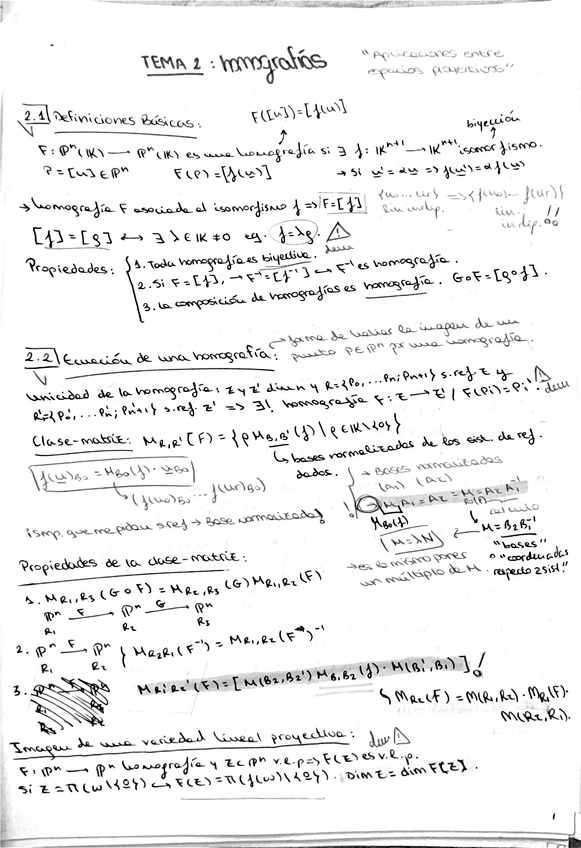 TEMA 2 : Homografías
"Aplicaciones entre
espacios proyectivos"
2.1 Definiciones Básicas:
F([u])=[f(u)]
biyección
F: ℙⁿ(IK) → ℙⁿ(IK) es una homografía si ∃ f: IKⁿ⁺¹ → IKⁿ⁺¹ isomorfismo.
P=[u]∈ℙⁿ F(P)=[f(u)] → si u'=αu => f(u')=αf(u)
→ homografía F asociada al isomorfismo f => F=[f]
{u0...ur} => {f(u0)...f(ur)}
lin indip. lin. indip. !!
[f]=[g] ↔ ∃ λ∈IK≠0 tq. f=λg. dem
Propiedades: 1. Toda homografía es biyectiva.
2. Si F=[f], → F⁻¹=[f⁻¹] ↔ F⁻¹ es homografía.
3. La composición de homografías es homografía. G∘F=[g∘f].
2.2 Ecuación de una homografía:
→ forma de hallar la imagen de un
punto P∈ℙⁿ por una homografía.
Unicidad de la homografía: Z y Z' dim n y R={P0,...Pn; Pn+1} s.ref. Z y
R'={P0',...Pn'; Pn+1'} s.ref. Z' => ∃! homografía F: Z → Z' / F(Pi)=Pi'. dem
Clase-matriz: M_R,R'[F] = {ρ M_B,B'(f) | ρ∈IK\{0}}
bases normalizadas de los sist. de ref.
dados.
f(u)B0 = MB0(f)·uB0
(f(u0)B0 ... f(ur)B0)
→ Bases normalizadas
(A1) (A2)
! → M A1 = A2 → M = A2 A1⁻¹
MB0(f) cálculo
¡smp. que me pidan s.ref → Base normalizada!
(M=λN) M=B2B1⁻¹
"bases"
→ es lo mismo poner
un múltiplo de M.
o "coordenadas
respecto 2 sist."
Propiedades de la clase-matriz:
1. MR1,R3(G∘F) = MR2,R3(G) MR1,R2(F)
ℙⁿ F→ ℙⁿ G→ ℙⁿ
R1 R2 R3
2. ℙⁿ F→ ℙⁿ } MR2R1(F⁻¹) = MR1,R2(F)⁻¹
R1 R2
3. MR1'R2'(F) = [M(B2,B2') MB1,B2(f) · M(B1',B1)] !
MR2(F) = M(R1,R2)·MR1(F)·
M(R2,R1).
Imagen de una variedad lineal proyectiva: dem
F: ℙⁿ → ℙⁿ homografía y Z⊂ℙⁿ v.l.p => F(Z) es v.l.p.
Si Z=Π(W\{0}) ↔ F(Z)=Π(f(W)\{0}). Dim Z = dim F[Z].
1